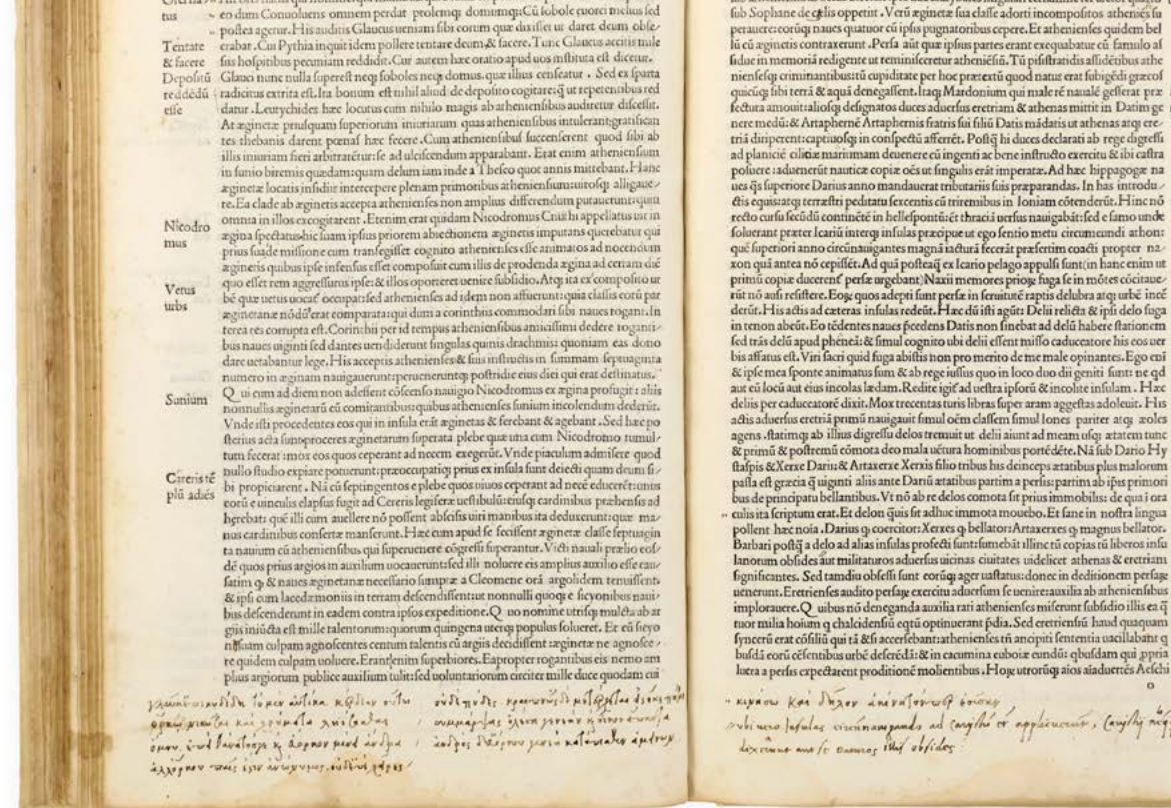 tus
eo dum Conuoluens omnem perdat prolemq; domumq;: Cū sobole euorci melius sed
postea agerur. His auditis Glaucus ueniam sibi eorum quæ dixisset ut daret deum obse/
Tentate
crabat. Cui Pythia inquit idem pollere tentare deum,& facere. Tunc Glaucus accitis mile
& facere
siis hospitibus pecuniam reddidit. Cur autem hæc oratio apud uos instituta est dicetur.
Depositū
Glauci nunc nulla superest neq; soboles neq; domus. quæ illius censeatur . Sed ex sparta
reddēdū
radicitus extrita est. Ita bonum est nihil aliud de deposito cogitare: q̄ ut repetentibus red
esse
datur. Leutychides hæc locutus cum nihilo magis ab atheniensibus audiretur discessit.
At æginetæ priusquam superiorum iniuriarum quas atheniensibus intulerant: gratifican
tes thebanis darent pœnas hæc fecere. Cum atheniensibus succenserent quod sibi ab
illis iniuriam fieri arbitrarētur: se ad ulciscendum apparabant. Erat enim atheniensium
in sunio biremis quædam: quam delum iam inde a Theseo quot annis mittebant. Hanc
æginetæ locatis insidiis intercepere plenam primoribus atheniensium: uirosq; alligaue/
re. Ea clade ab æginetis accepta athenienses non amplius differendum putauerunt: quin
omnia in illos excogitarent . Etenim erat quidam Nicodromus Cnuthi appellatus uir in
Nicodro
ægina spectatus: hic suam ipsius priorem abiectionem æginetis imputans querebatur qui
mus
prius suade missione cum transegisset cognito athenienses esse animatos ad nocendum
æginetis quibus ipse infensus esset composuit cum illis de prodenda ægina ad certam diē
quo esset rem aggressurus ipse: & illos oporteret uenire subsidio. Atq; ita ex composito ur
Vetus
bē quæ uetus uocat̄ occupat: sed athenienses ad idem non affuerunt: quia classis eorū par
urbs
æginetanæ nōdū erat comparata: qui dum a corinthiis commodari sibi naues rogant. In
terea res corrupta est. Corinthii per id tempus atheniensibus amicissimi dedere roganti/
bus naues uiginti sed dantes uendiderunt singulas quinis drachmis: quoniam eas dono
dare uetabantur lege. His acceptis athenienses & suis instructis in summam septuaginta
numero in æginam nauigauerunt: perueneruntq; postridie eius diei qui erat destinatus.
Sunium
Q ui cum ad diem non adessent cōscenso nauigio Nicodromus ex ægina profugit : aliis
nonnullis æginetarū eū comitantibus: quibus athenienses sunium incolendum dederūt.
Vnde isti procedentes eos qui in insula erāt æginetas & ferebant & agebant . Sed hæc po
sterius acta sunt: proceres æginetarum superata plebe quæ una cum Nicodromo tumul/
tum fecerat: mox eos quos ceperant ad necem exegerūt. Vnde piaculum admisere quod
nullo studio expiare potuerunt: præoccupatiq; prius ex insula sunt deiecti quam deum si/
Cereris tē
bi propiciarent . Nā cū septingentos e plebe quos uiuos ceperant ad necē educerēt: unus
plū adiēs
eorū e uinculis elapsus fugit ad Cereris legiferæ uestibulū: eiusq; cardinibus præhensis ad
herebat: quē illi cum auellere nō possent abscisis uiri manibus ita deduxerunt: quæ ma/
nus cardinibus consertæ manserunt. Hæc cum apud se fecissent æginetæ classe septuagin
ta nauium cū atheniensibus qui superuenere cōgressi superantur. Victi nauali prælio eos/
dē quos prius argios in auxilium uocauerunt: sed illi noluere eis amplius auxilio esse cau/
satim q; & naues æginetanæ necessario sumptæ a Cleomene orā argolidem tenuissent:
& ipsi cum lacedæmoniis in terram descendissent: ut nonnulli quoq; e sicyonibus naui/
bus descenderunt in eadem contra ipsos expeditione. Q uo nomine utrisq; mulcta ab ar
giis iniūcta est mille talentorum: quorum quingena uterq; populus solueret. Et eū sicyo
nii suam culpam agnoscentes centum talentis cū argiis decidissent: æginetæ ne agnosce/
re quidem culpam uoluere. Erant enim superbiores. Eapropter rogantibus eis nemo am
plius argiorum publice auxilium tulit: sed uoluntariorum circiter mille duce quodam cui
sub Sophane decelis oppetit . Verū æginetæ sua classe adorti incompositos atheniēs su
perauere: eorūq; naues quatuor cū ipsis pugnatoribus cepere. Et athenienses quidem bel
lū cū æginetis contraxerunt. Persa aūt quæ ipsius partes erant exequabatur cū famulo as
sidue in memoriā redigente ut reminisceretur atheniēsiū. Tū pisistratidis assidētibus athe
niensesq; criminantibus: tū cupiditate per hoc prætextū quod natus erat subigēdi græcos
quicūq; sibi terrā & aquā denegassent. Itaq; Mardonium qui male rē naualē gesserat præ
fectura amouit: aliosq; designatos duces aduersus eretriam & athenas mittit in Datim ge
nere medū: & Artaphernē Artaphernis fratris sui filiū Datis mādatis ut athenas atq; ere/
triā diriperent: captiuosq; in conspectū afferrēt. Postq̄ hi duces declarati ab rege digressi
ad planiciē ciliciæ marinamam deuenere cū ingenti ac bene instructo exercitu & ibi castra
posuere : aduenerūt nauticæ copiæ oēs ut singulis erāt imperatæ. Ad hæc hippagogæ na
ues q̄s superiore Darius anno mandauerat tributariis suis præparandas. In has introdu/
ctis equis: atq; terræstri peditatu sexcentis cū triremibus in Ioniam cōtenderūt. Hinc nō
recto cursu secūdū continētē in hellespontū: et thraciā uersus nauigabāt: sed e samo unde
soluerant præter Icariū interq; insulas præcipue ut ego sentio metu circumeundi athon:
quē superiori anno circūnauigantes magnā iacturā fecerāt præsertim coacti propter na/
xon quā antea nō cepissēt. Ad quā posteaq̄ ex Icario pelago appulsi sunt (in hanc enim ut
primū copiæ ducerent̄ persæ urgebant) Naxii memores prioꝝ fuga se in mōtes cōcitaue/
rūt nō ausi resistere. Eoꝝ quos adepti sunt persæ in seruitutē raptis delubra atq; urbē incē
derūt. His actis ad cæteras insulas redeūt. Hæc dū isti agūt: Delii relicta & ipsi delo fuga
in tenon abeūt. Eo tēdentes naues p̄cedens Datis non sinebat ad delū habere stationem
sed trās delū apud phēnēā: & simul cognito ubi delii essent misso caduceatore his eos uer
bis affatus est. Viri sacri quid fuga abistis non pro merito de me male opinantes. Ego enī
& ipse mea sponte animatus sum & ab rege iussus quo in loco duo dii geniti sunt: ne qd
aut eū locū aut eius incolas lædam. Redite igit̄ ad uestra ipsorū & incolite insulam . Hæc
deliis per caduceatorē dixit. Mox trecentas turis libras super aram aggestas adoleuit. His
actis aduersus eretriā primū nauigauit simul oēm classem simul Iones pariter atq; æoles
agens .statimq; ab illius digressu delos tremuit ut delii aiunt ad meam usq; ætatem tunc
& primū & postremū cōmota deo mala uētura hominibus portēdēte. Nā sub Dario Hy
staspis & Xerxe Darii: & Artaxerxe Xerxis filio tribus his deinceps ætatibus plus malorum
passa est græcia q̄ uiginti aliis ante Dariū ætatibus partim a persis: partim ab ip̄is primori
bus de principatu bellantibus. Vt nō ab re delos comota sit prius immobilis: de qua i ora
culis ita scriptum erat. Et delon quis sit adhuc immota mouebo. Et sane in nostra lingua
pollent hæc noīa . Darius q; coercitor: Xerxes q; bellator: Artaxerxes q; magnus bellator.
Barbari postq̄ a delo ad alias insulas profecti sunt: sumebāt illinc tū copias tū liberos insu
lanorum obsides aut militaturos aduersus uicinas ciuitates uidelicet athenas & eretriam
significantes. Sed tamdiu obsessi sunt eorūq; ager uastatus: donec in deditionem persaꝝ
uenerunt. Eretrienses audito persaꝝ exercitu aduersum se uenire: auxilia ab atheniensibus
implorauere. Q uibus nō deneganda auxilia rati athenienses miserunt subsidio illis ea q̄
tuor milia hoium q; chalcidensiū eqtū optinuerant p̄dia. Sed eretriensiū haud quaquam
syncerū erat cōsiliū qui tā & si accersebant: athenienses tñ ancipiti sententia uacillabant q
busdā eorū cēsentibus urbē deserēdā: & in cacumina euboiæ eundū: qbusdam qui ppria
luera a persis expectarent proditionē molientibus . Hoꝝ utrorūq; aios aiaduertēs Aeschi
o
κινήσω καὶ δῆλον ἀκίνητόν περ ἐοῦσαν